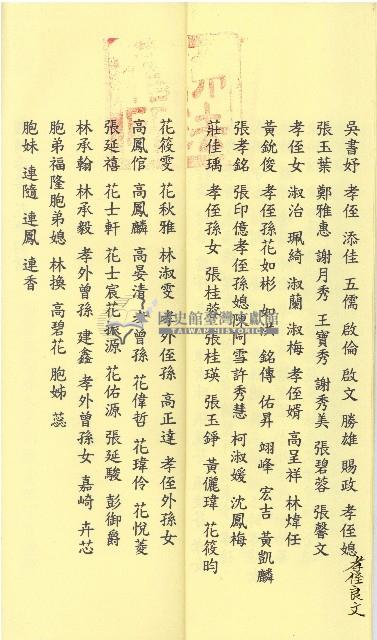 吳書妤 孝侄 添佳 五儒 啟倫 啟文 勝雄 賜政 孝侄媳
孝侄良文
張玉葉 鄭雅惠 謝月秀 王寶秀 謝秀美 張碧蓉 張馨文
孝侄女 淑治 珮綺 淑蘭 淑梅 孝侄婿 高呈祥 林煒任
黃銳俊 孝侄孫花如彬 如 銘傳 佑昇 翊峰 宏吉 黃凱麟
張孝銘 張印億孝侄孫媳陳阿雪許秀慧 柯淑媛 沈鳳梅
莊佳瑀 孝侄孫女 張桂蓉 張桂瑛 張玉錚 黃儷瑋 花筱昀
花筱雯 花秋雅 林淑雯 孝外侄孫 高正達 孝侄外孫女
高鳳倌 高鳳麟 高晏清 曾孫 花偉哲 花瑋伶 花悅菱
張延禧 花士軒 花士宸花振源 花佑源 張延駿 彭御爵
林承翰 林承毅 孝外曾孫 建鑫 孝外曾孫女 嘉崎 卉芯
胞弟福隆胞弟媳 林換 高碧花 胞姊 蕊
胞妹 連隨 連鳳 連香
史館臺灣文獻館
TAIWAN HISTORICA